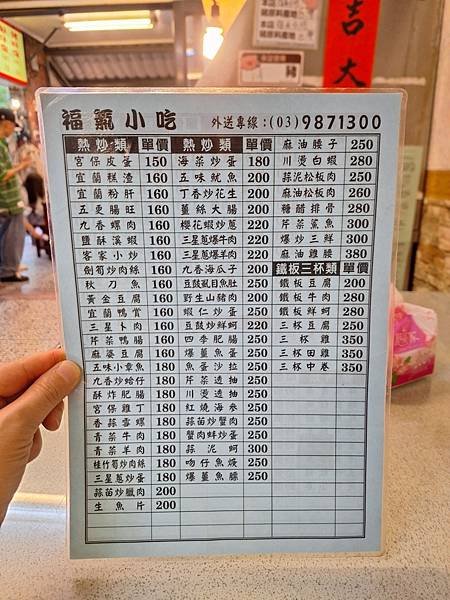 福氣小吃 外送專線:(03)9871300
熱炒類 單價
宮保皮蛋 150
宜蘭糕渣 160
宜蘭粉肝 160
五更腸旺 160
九香螺肉 160
鹽酥溪蝦 160
客家小炒 160
劍筍炒肉絲 160
秋刀魚 160
黃金豆腐 160
宜蘭鴨賞 160
三星卜肉 160
芹菜鴨腸 160
麻婆豆腐 160
五味小章魚 180
九香炒蛤仔 180
酥炸肥腸 180
宮保雞丁 180
香蒜雪螺 180
青菜牛肉 180
青菜羊肉 180
桂竹筍炒肉絲 180
三星蔥炒蛋 180
蒜苗炒臘肉 200
生魚片 200
熱炒類 單價
海菜炒蛋 180
五味魷魚 200
丁香炒花生 200
薑絲大腸 200
櫻花蝦炒蔥 200
三星蔥爆牛肉 220
三星蔥爆羊肉 220
九香海瓜子 200
豆豉虱目魚肚 250
野生山豬肉 200
蝦仁炒蛋 250
豆豉炒鮮蚵 220
四季肥腸 250
爆薑魚蛋 250
魚蛋沙拉 250
芹菜透抽 250
川燙透抽 250
紅燒海參 250
蒜苗炒蟹肉 250
蟹肉蚌炒蛋 250
蒜泥蚵 300
吻仔魚羹 250
爆薑魚鰾 250
麻油腰子 250
川燙白蝦 280
蒜泥松板肉 250
麻油松板肉 260
糖醋排骨 280
芹菜鯊魚 250
爆炒三鮮 300
麻油雞腰 380
鐵板三杯類 單價
鐵板豆腐 200
鐵板牛肉 280
鐵板鮮蚵 280
三杯豆腐 250
三杯雞 350
三杯田雞 350
三杯中卷 350
吉
大